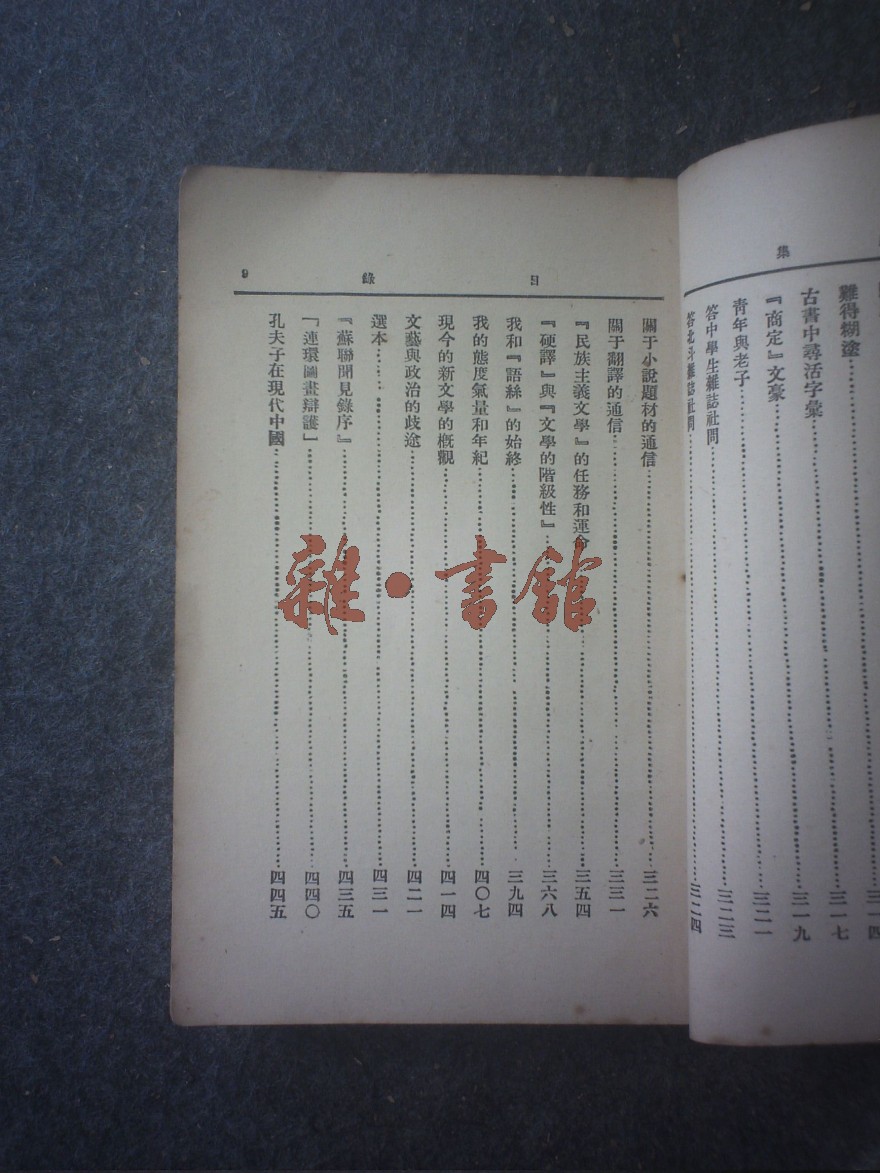 集
難得糊塗……三一七
古書中尋活字彙……三一九
『商定』文豪……三二一
青年與老子……三二三
答中學生雜誌社問……三二三
答北斗雜誌社問……三二四
目錄 9
關于小說題材的通信……三二六
關于翻譯的通信……三三一
『民族主義文學』的任務和運命……三五四
『硬譯』與『文學的階級性』……三六八
我和『語絲』的始終……三九四
我的態度氣量和年紀……四〇七
現今的新文學的概觀……四一四
文藝與政治的歧途……四二一
選本……四三一
『蘇聯聞見錄序』……四三五
「連環圖畫辯護」……四四〇
孔夫子在現代中國……四四五
雜·書館